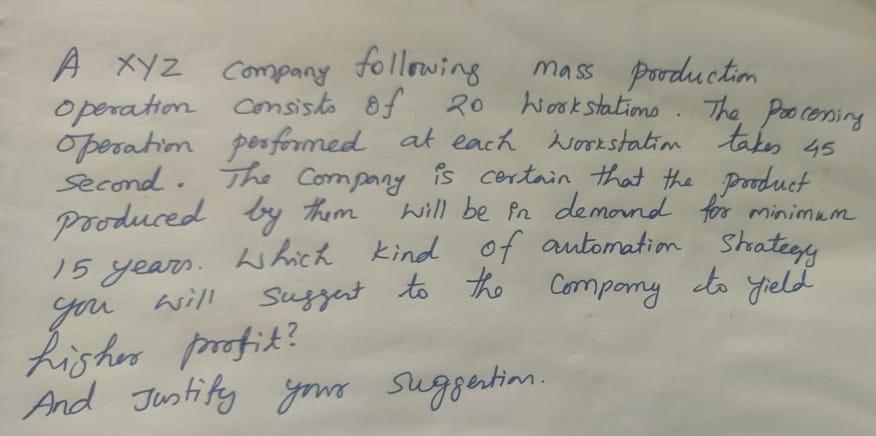 A XYZ Company following mass production
operation consists of 20 workstations. The Processing
operation performed at each workstation takes 45
second. The Company is certain that the product
produced by them will be in demand for minimum
15 years. Which kind of automation Strategy
you will suggest to the Company to yield
higher profit?
And Justify your suggestion.